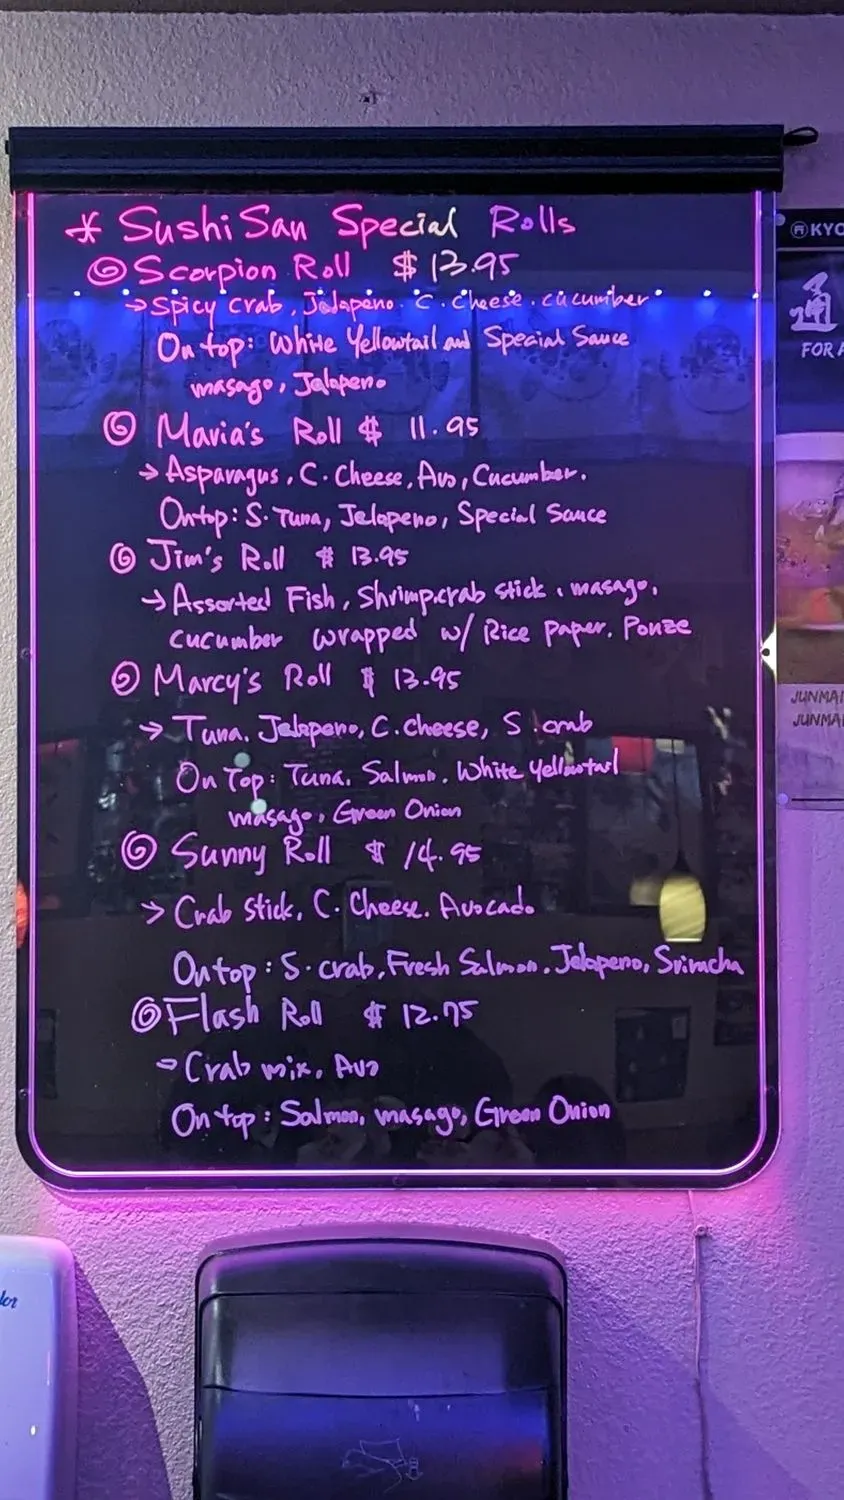 * Sushi San Special Rolls
Scorpion Roll $13.95
→ Spicy Crab, Jelapeno. C. Cheese. cucumber
On top: White Yellowtail and Special Sauce
masago, Jelapeno
Maria's Roll $ 11.95
→ Asparagus, C. Cheese, Avo, Cucumber.
On top: S. Tuna, Jelapeno, Special Sauce
Jim's Roll $ 13.95
→ Assorted Fish, Shrimp, crab stick, masago,
cucumber wrapped w/ Rice paper. Ponze
Marcy's Roll $ 13.95
→ Tuna. Jelapeno, C. Cheese, S. crab
On Top: Tuna, Salmon, White Yellowtail
masago, Green Onion
Sunny Roll $ 14.95
→ Crab Stick, C. Cheese. Avocado
On top: S. crab, Fresh Salmon, Jelapeno, Sriracha
Flash Roll $ 12.75
→ Crab mix, Avo
On top: Salmon, masago, Green Onion
KYO
通
FOR A
JUNMAI
JUNMAI